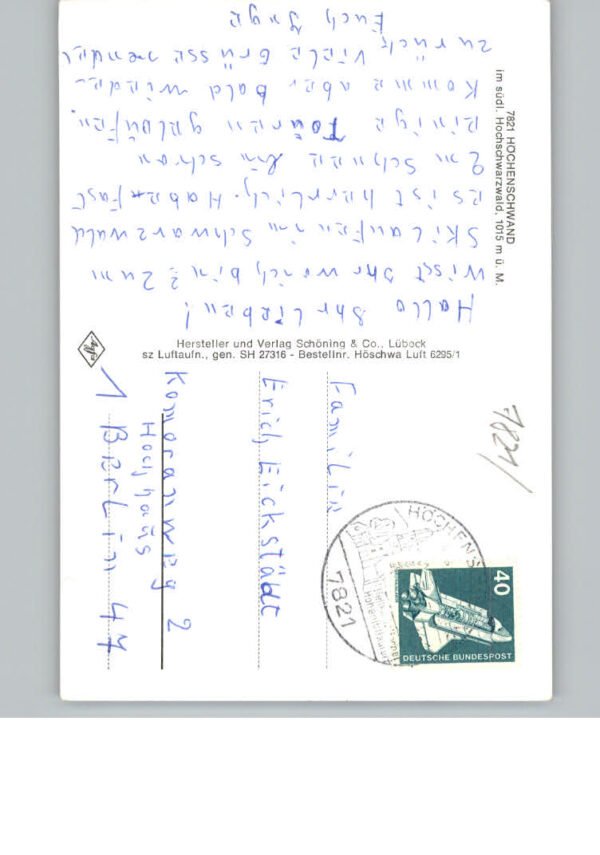 7821 HÖCHENSCHWAND
im südl. Hochschwarzwald, 1015 m ü. M.
Hallo Ihr Lieben!
Wisst Ihr wo ich bin? Zum
Skilaufen im Schwarzwald
es ist herrlich. Haben fast
2m Schnee bin schon
einige Touren gelaufen.
Komme aber bald wieder
zurück, Viele Grüsse sendet
Euch Inge
Agfa
Hersteller und Verlag Schöning & Co., Lübeck
sz Luftaufn., gen. SH 27316 - Bestellnr. Höschwa Luft 6295/1
7821/
Familie
Erich Eickstädt
Komoranweg 2
Hochhaus
1 Berlin 47
7821
40
DEUTSCHE BUNDESPOST